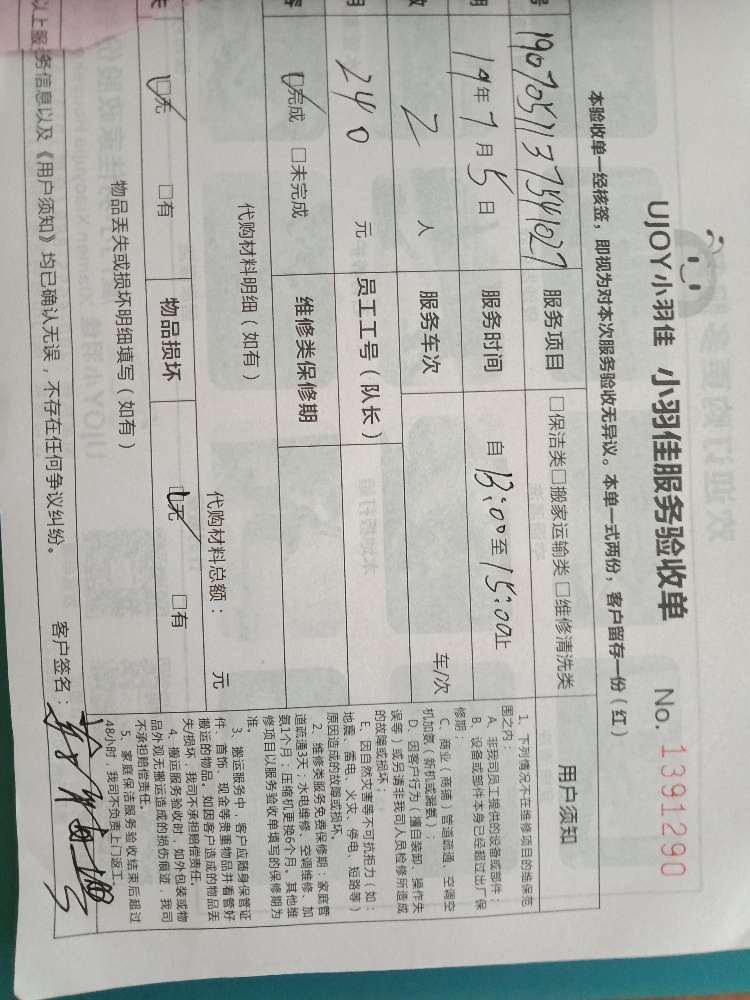 UJOY小羽佳 小羽佳服务验收单 No. 1391290
本验收单一经核签，即视为对本次服务验收无异议。本单一式两份，客户留存一份（红）
号 服务项目 □保洁类□搬家运输类□维修清洗类
期 19年7月5日 服务时间 自13:00至15:00止
数 2人 服务车次 车/次
用 240元 员工工号（队长）
容 □完成 □未完成 维修类保修期
代购材料明细（如有） 代购材料总额： 元
失 □无 □有 物品损坏 □无 □有
物品丢失或损坏明细填写（如有）
以上服务信息以及《用户须知》均已确认无误，不存在任何争议纠纷。 客户签名：
用户须知
1、下列情况不在维修项目的维保范
围之内：
A、非我司员工提供的设备或部件；
B、设备或部件本身已经超过出厂保
修期；
C、商业（商铺）管道疏通、空调空
机加氨（新机或漏氨）；
D、因客户行为（擅自装卸、操作失
误等）或另请非我司人员检修所造成
的故障或损坏；
E、因自然灾害等不可抗拒力（如：
地震、雷电、火灾、停电、短路等）
原因造成的故障或损坏。
2、维修类服务免费保修期：家庭管
道疏通3天；水电维修、空调维修、加
氨1个月；压缩机更换6个月。其他维
修项目以服务验收单填写的保修期为
准。
3、搬运服务中，客户应随身保管证
件、首饰、现金等贵重物品并看管好
搬运的物品。如因客户造成的物品丢
失/损坏，我司不承担赔偿责任。
4、搬运服务验收时，如外包装或物
品外观无搬运造成的损伤痕迹，我司
不承担赔偿责任。
5、家庭保洁服务验收结束后超过
48小时，我司不负责上门返工。